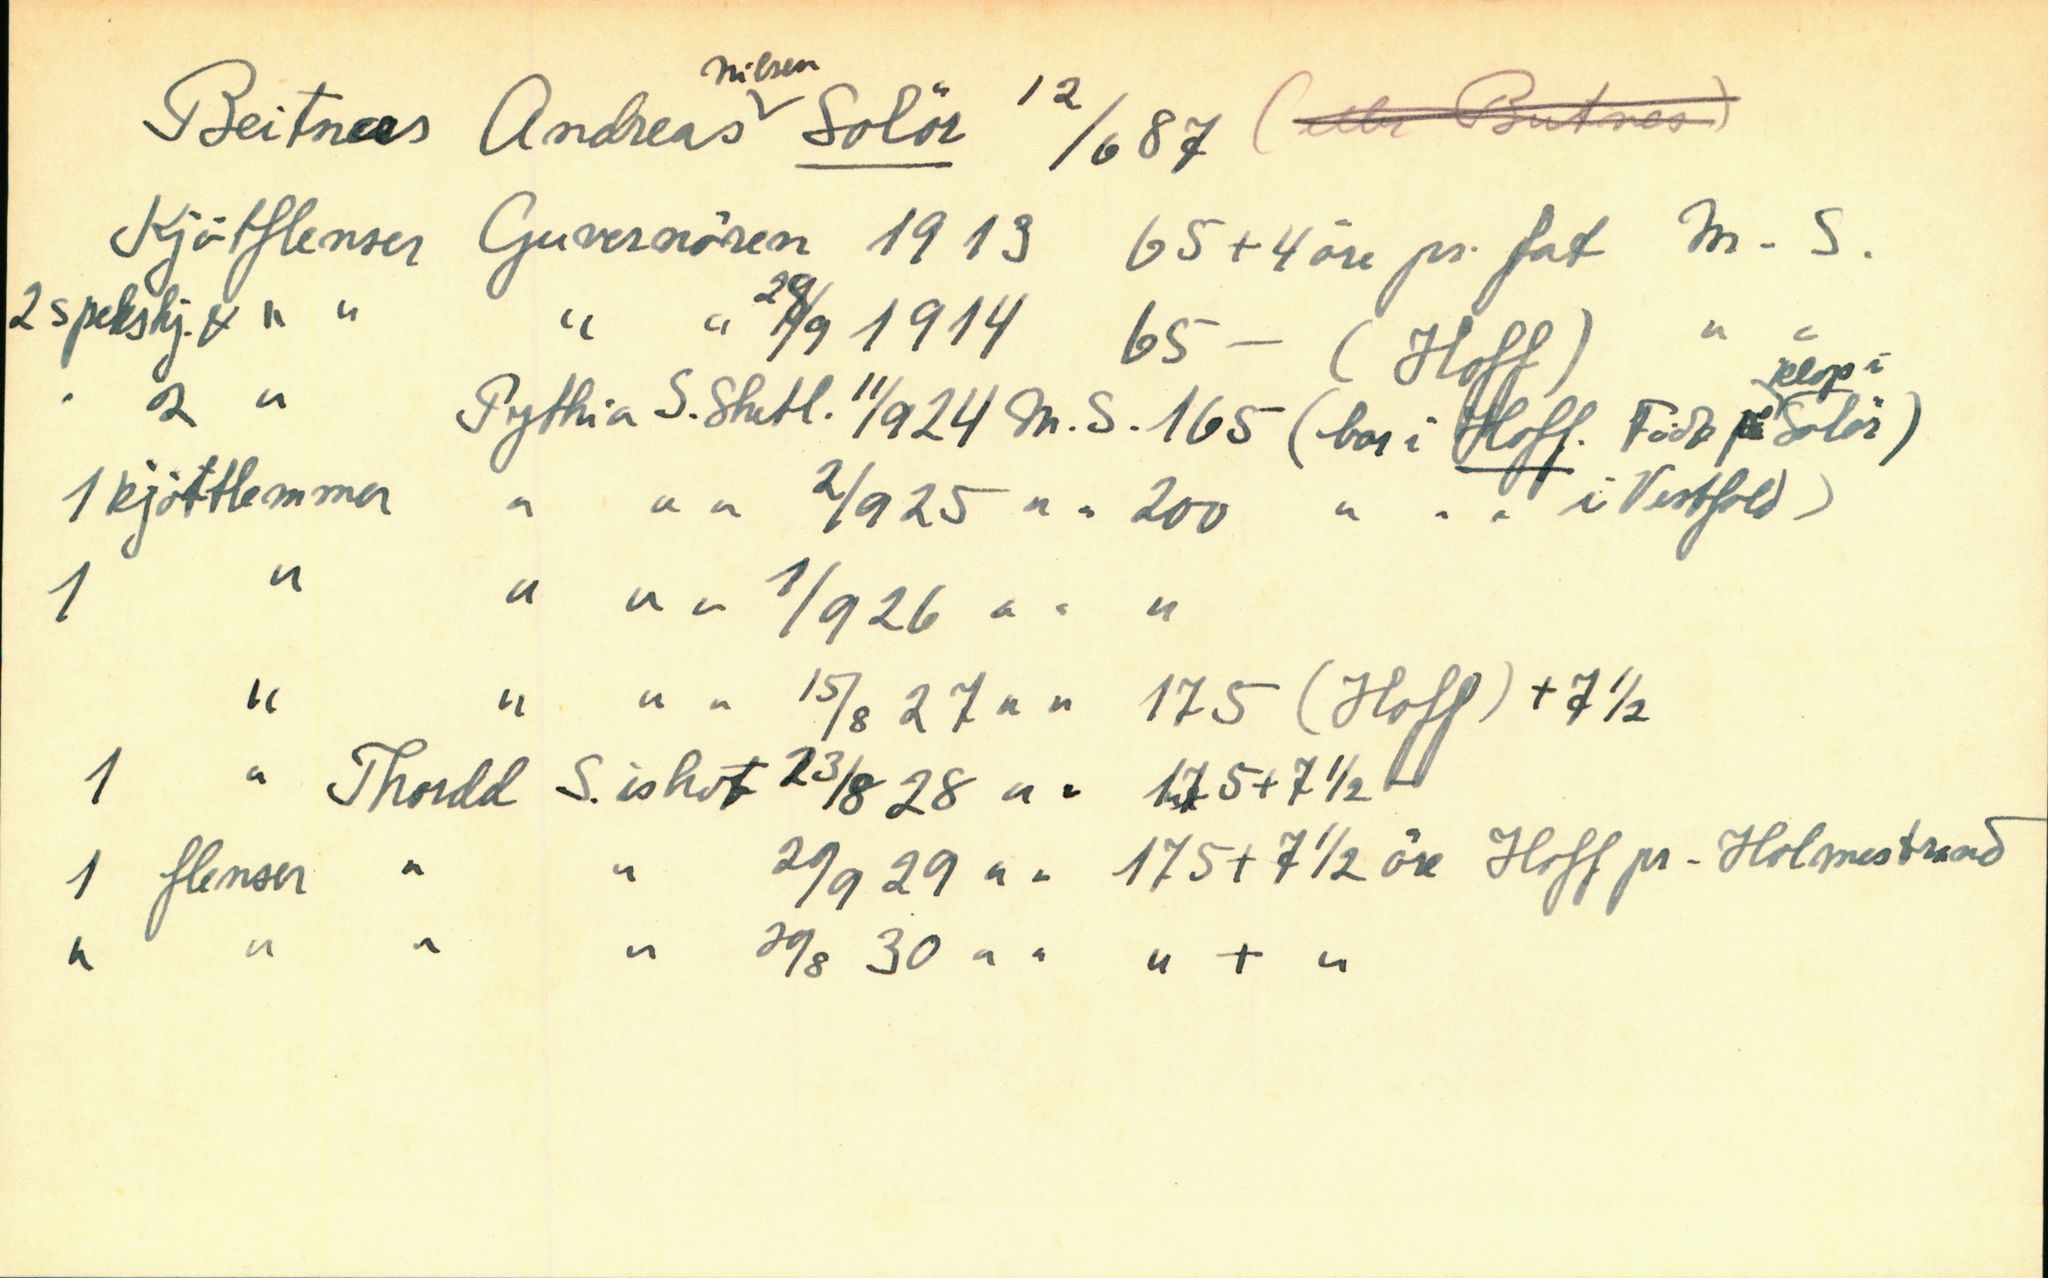 Beitnees Andreas Nilsen Solör 12/6 87 (eller Butnes)
Kjötflenser Guvernören 1913 65+4 öre pr. fat M-S.
2 spekshj. & " " " " 29/9 1914 65- (Hoff) " "
" 2 " Pythia S. Shetl. 11/9 24 M.S. 165 (bor i Hoff. Född på Solör)
1 kjöttlemmer " " " 2/9 25 " " 200 " " " i Vestfold)
1 " " " " 1/9 26 " " "
" " " " 15/8 27 " " 175 (Hoff) + 7 1/2
1 " Thordd S. ishot 23/8 28 " " 175+7 1/2 -
1 flenser " " 29/9 29 " " 175+7 1/2 öre Hoff pr - Holmestrand
" " " " 29/8 30 " " " + "